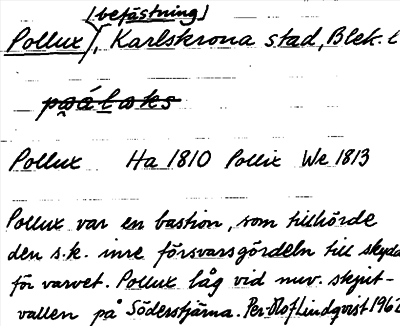 [befästning]
Pollux, Karlskrona stad, Blek. l
Pollux Ha 1810 Pollix We 1813
Pollux var en bastion, som tillhörde
den s.k. inre försvarsgördeln till skydd
för varvet. Pollux låg vid nuv. skjut-
vallen på Söderstjärna. Per-Olof Lindqvist 1962